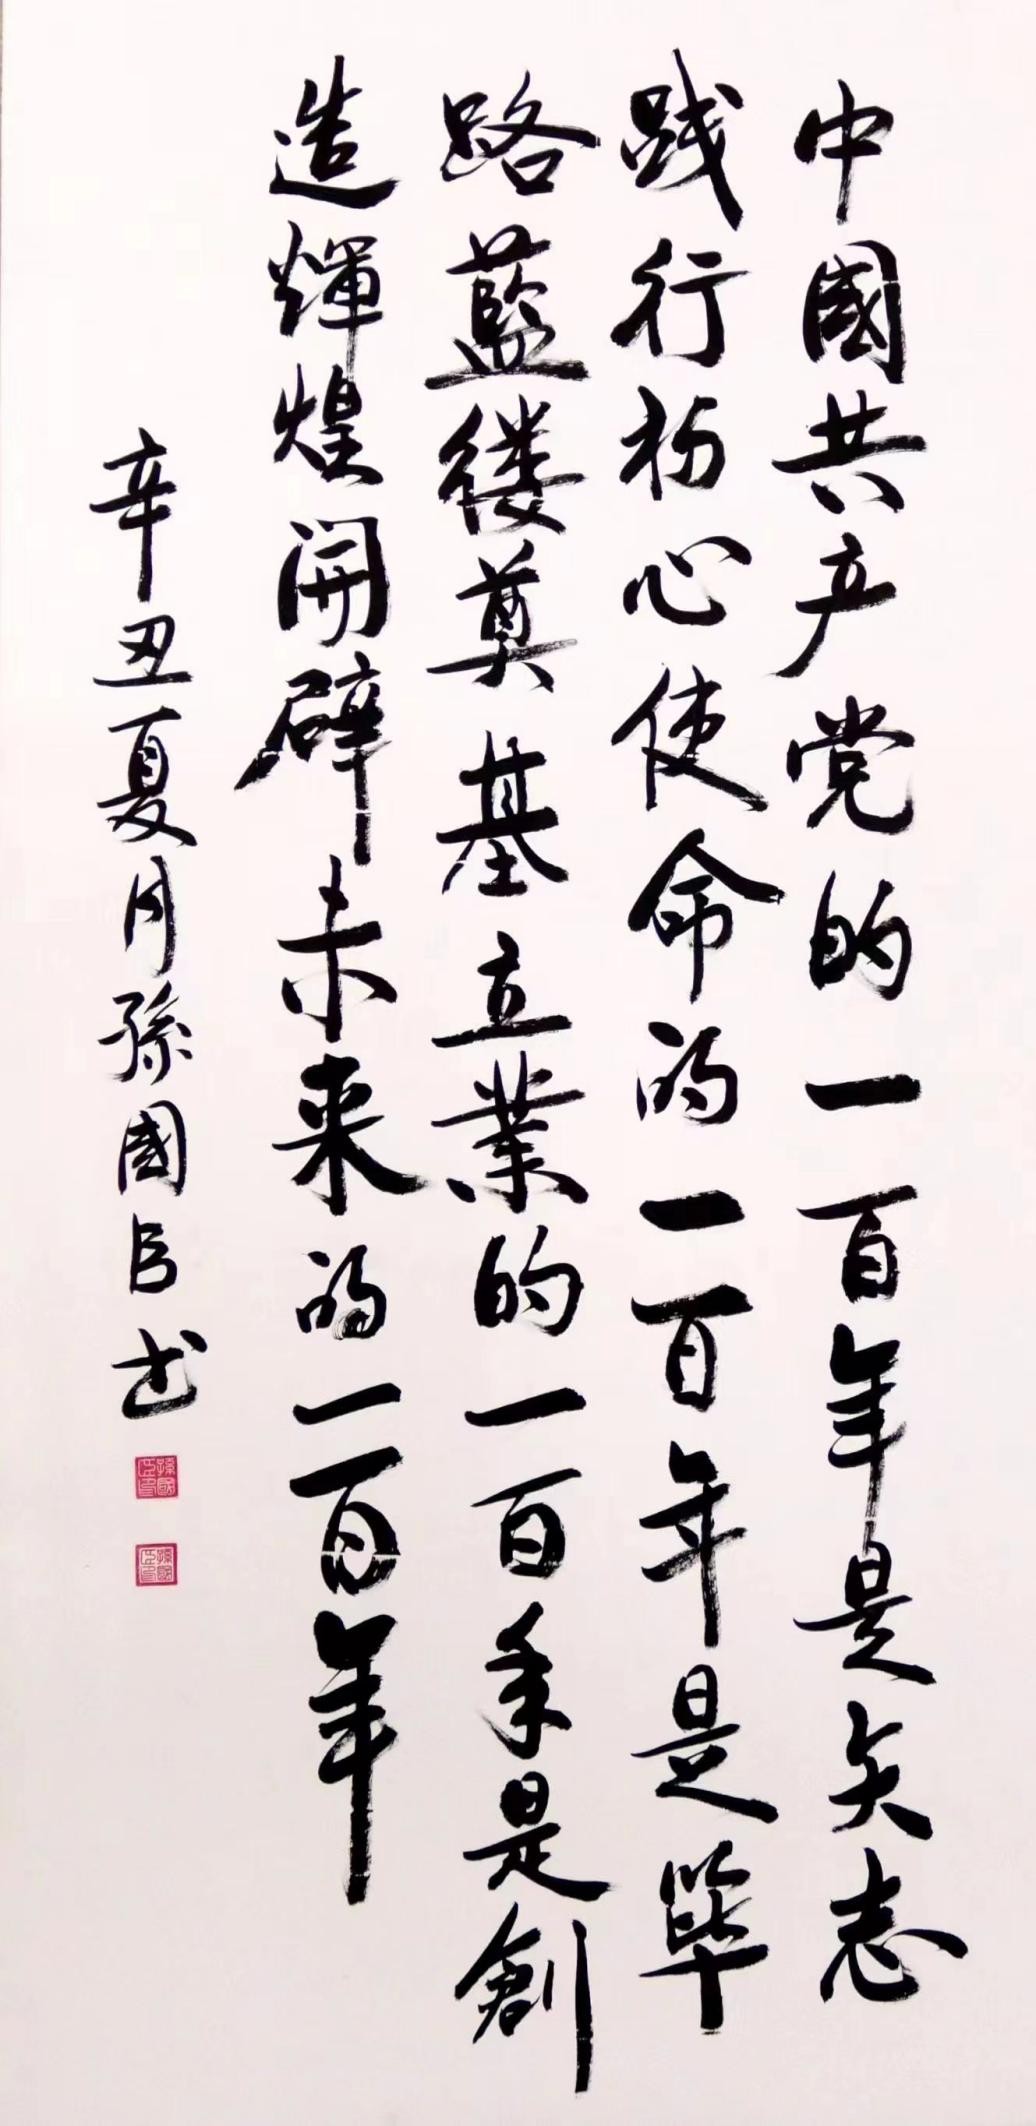 中國共产党的一百年是矢志
践行初心使命的一百年是筚
路藍缕奠基立業的一百年是創
造輝煌開辟未来的一百年
辛丑夏月孫國臣书
孫國臣印
孫國臣印